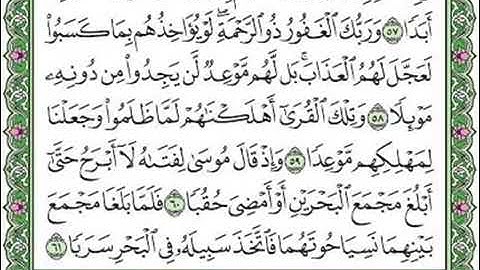 أَبَدًا ۝٥٧ وَرَبُّكَ ٱلْغَفُورُ ذُو ٱلرَّحْمَةِ ۖ لَوْ يُؤَاخِذُهُم بِمَا كَسَبُوا۟
لَعَجَّلَ لَهُمُ ٱلْعَذَابَ ۚ بَل لَّهُم مَّوْعِدٌ لَّن يَجِدُوا۟ مِن دُونِهِۦ
مَوْئِلًا ۝٥٨ وَتِلْكَ ٱلْقُرَىٰٓ أَهْلَكْنَٰهُمْ لَمَّا ظَلَمُوا۟ وَجَعَلْنَا
لِمَهْلِكِهِم مَّوْعِدًا ۝٥٩ وَإِذْ قَالَ مُوسَىٰ لِفَتَىٰهُ لَآ أَبْرَحُ حَتَّىٰٓ
أَبْلُغَ مَجْمَعَ ٱلْبَحْرَيْنِ أَوْ أَمْضِىَ حُقُبًا ۝٦٠ فَلَمَّا بَلَغَا مَجْمَعَ
بَيْنِهِمَا نَسِيَا حُوتَهُمَا فَٱتَّخَذَ سَبِيلَهُۥ فِى ٱلْبَحْرِ سَرَبًا ۝٦١